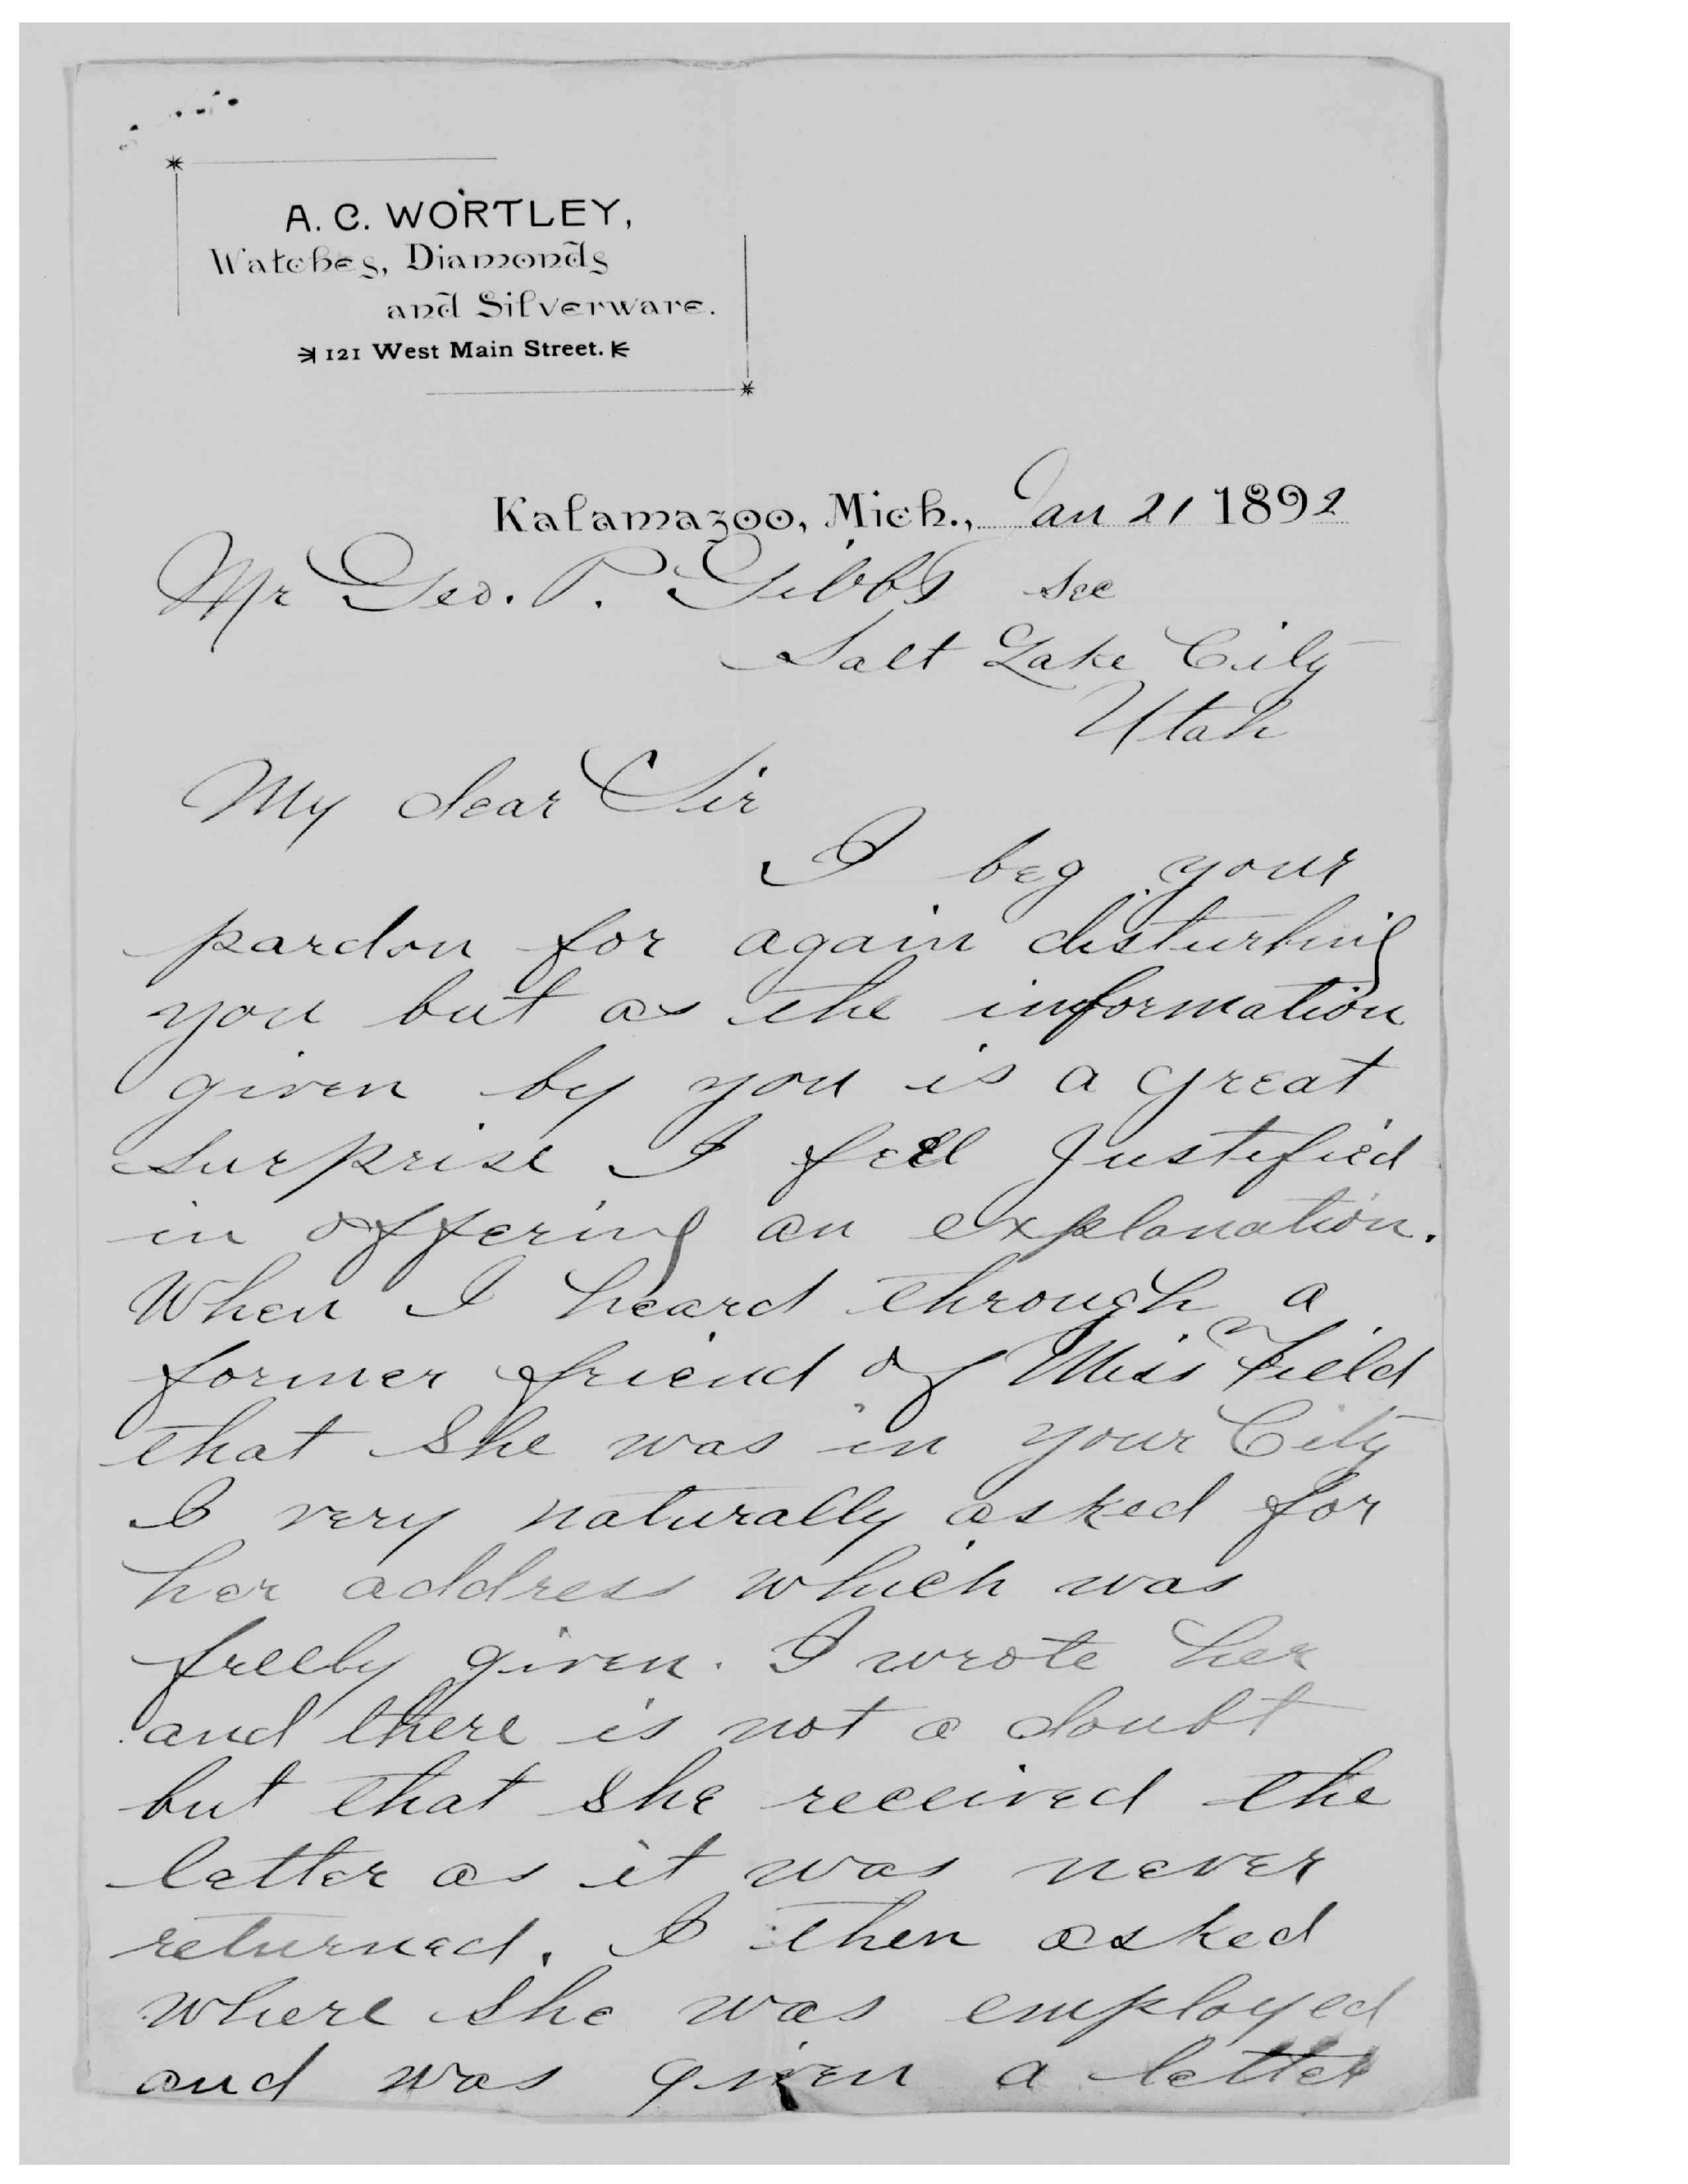 A. C. WORTLEY,
Watches, Diamonds
and Silverware.
121 West Main Street.
Kalamazoo, Mich., Jan 21 1892
Mr Geo. P. Gibbs Sec
Salt Lake City
Utah
My dear Sir
I beg your
pardon for again disturbing
you but as the information
given by you is a great
surprise I feel Justified
in offering an explanation.
When I heard through a
former friend of Miss Field
that She was in your City
I very naturally asked for
her address which was
freely given. I wrote her
and there is not a doubt
but that She received the
letter as it was never
returned. I then asked
where She was employed
and was given a letter